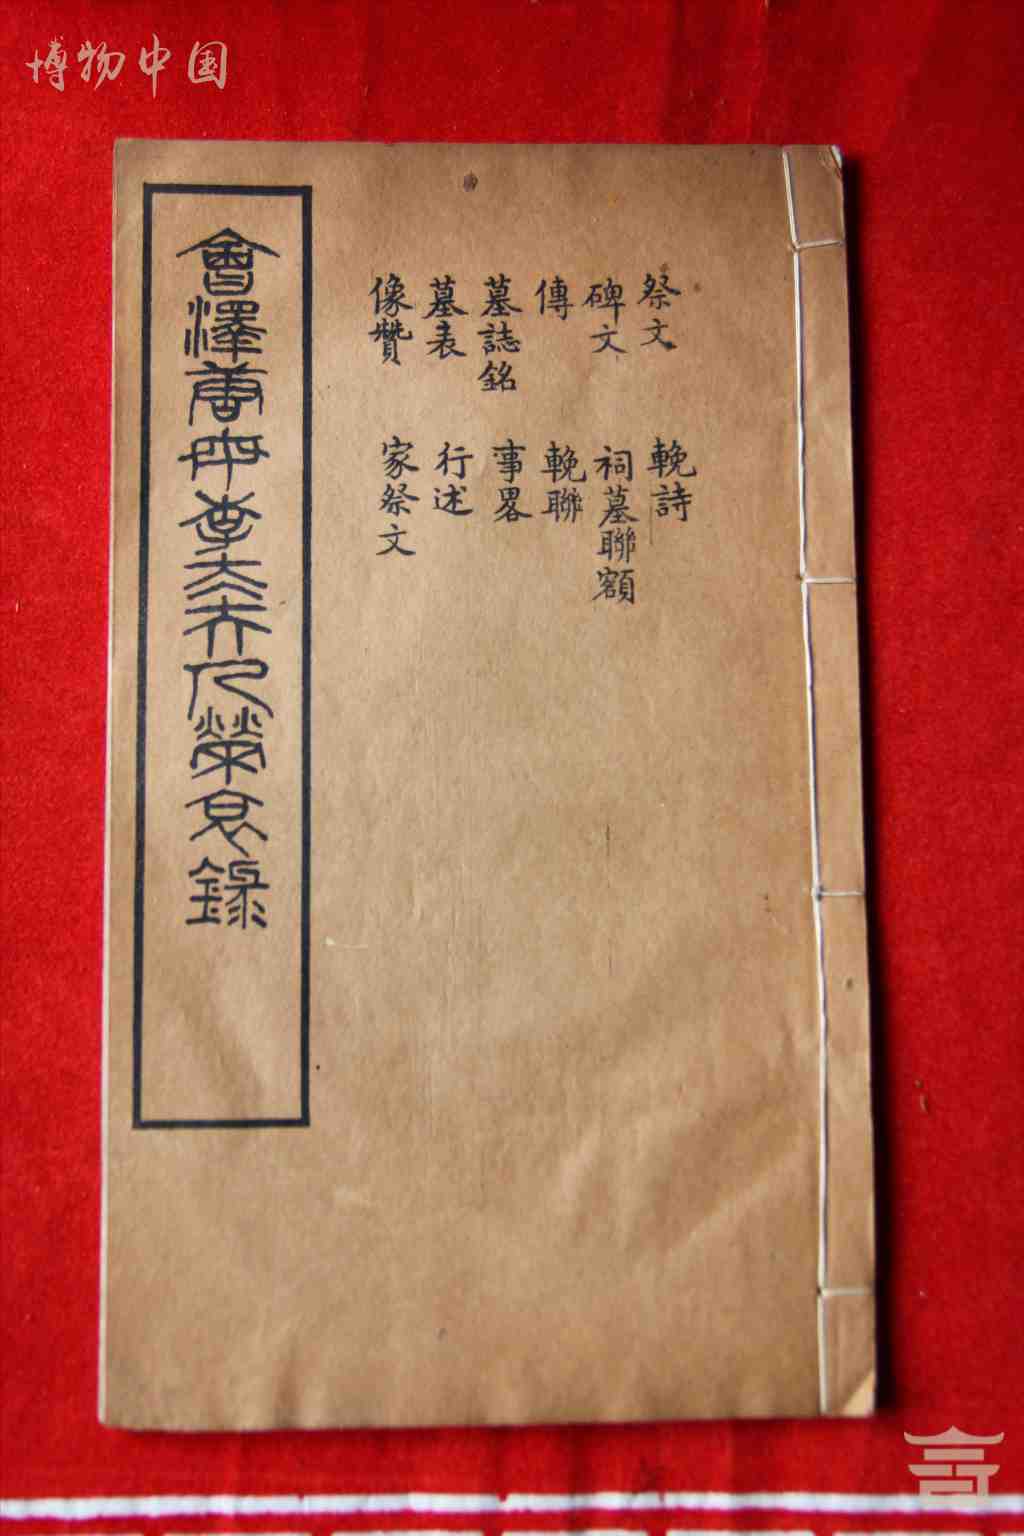 博物中国
祭文
碑文
傳
墓誌銘
墓表
像贊
輓詩
祠墓聯額
輓聯
事畧
行述
家祭文
會澤唐母李太夫人榮哀錄